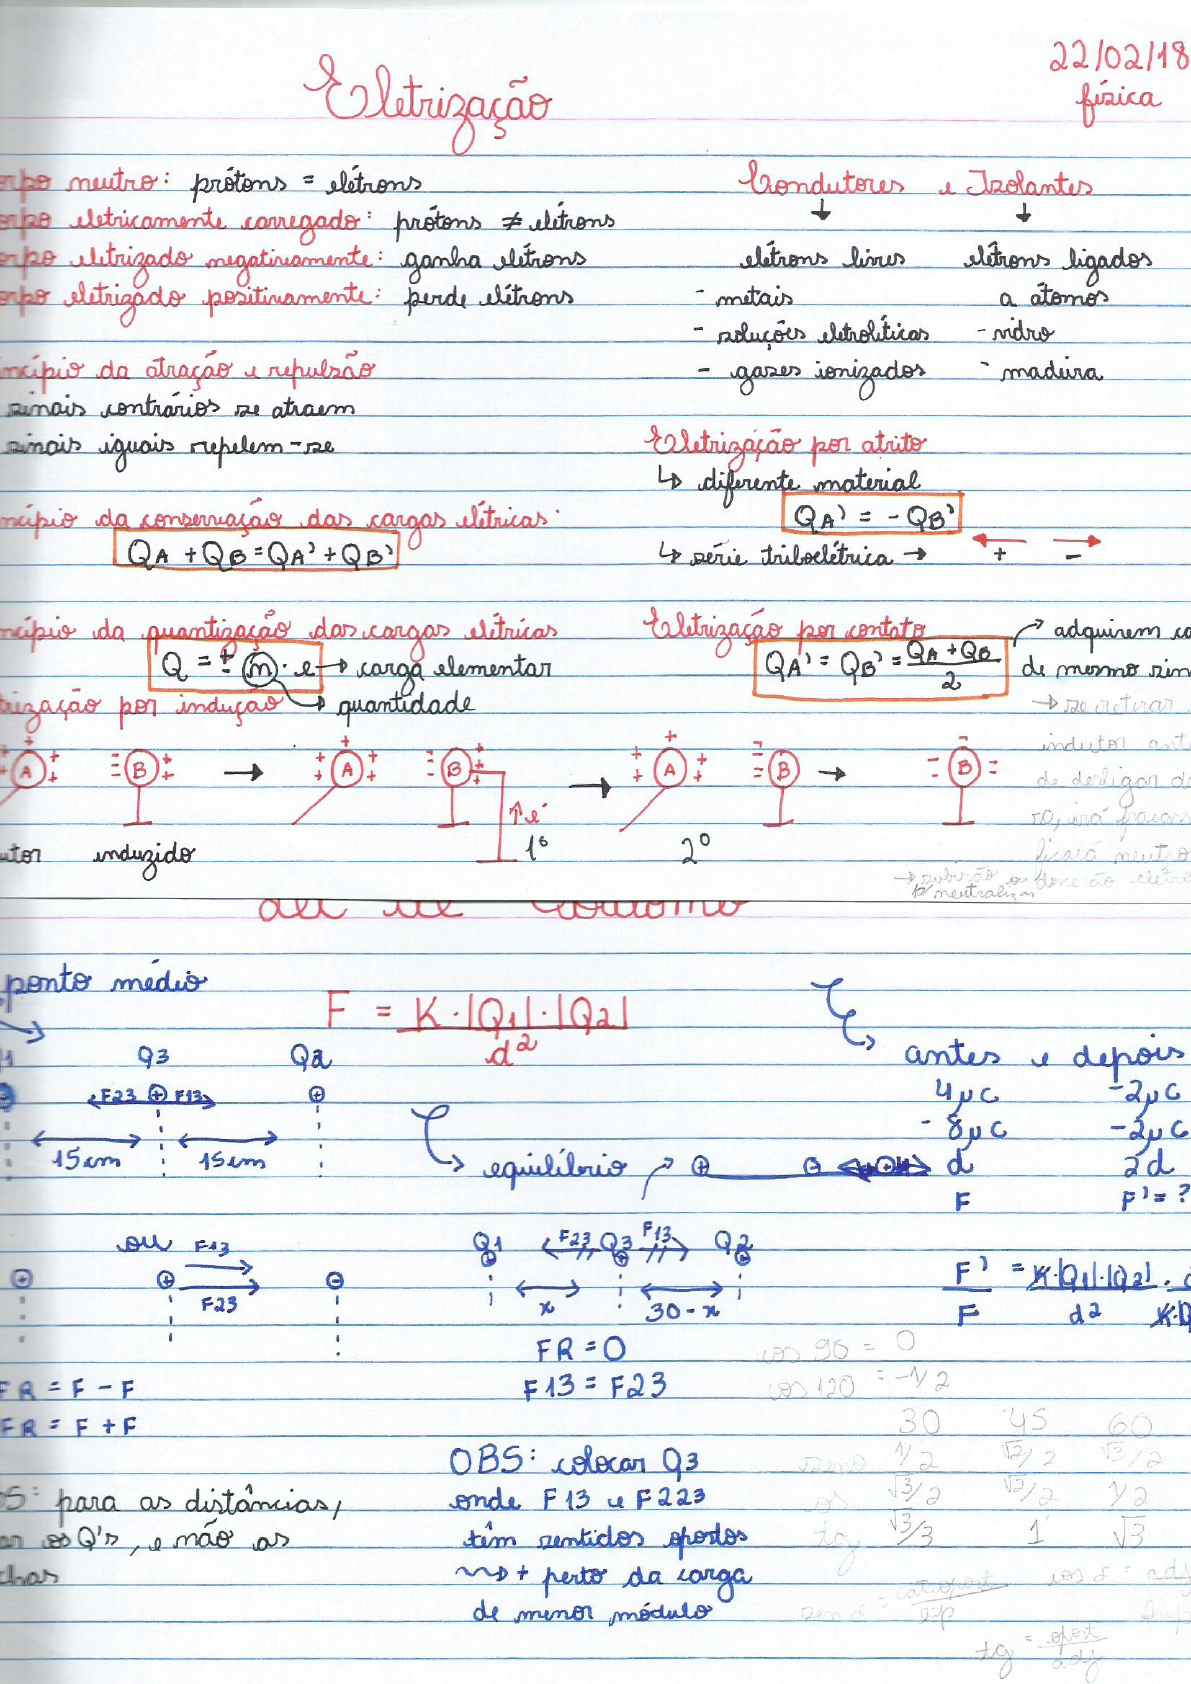 22/02/18
física
Eletrização
orpo neutro: prótons = elétrons
orpo eletricamente carregado: prótons ≠ elétrons
orpo eletrizado negativamente: ganha elétrons
orpo eletrizado positivamente: perde elétrons
Condutores e Izolantes
↓ ↓
elétrons livres elétrons ligados
- metais a átomos
- soluções eletrolíticas - vidro
- gases ionizados - madeira
incípio da atração e repulsão
sinais contrários se atraem
sinais iguais repelem-se
Eletrização por atrito
↳ diferente material
QA' = - QB'
↳ série triboelétrica → + -
incípio da conservação das cargas elétricas:
QA + QB = QA' + QB'
ncípio da quantização das cargas elétricas
Q = ± n · e → carga elementar
→ quantidade
Eletrização por contato
QA' = QB' = QA + QB / 2
→ adquirem ca
de mesmo sin
trização por indução
A B → A B → A B → B
↑ e⁻
utor induzido 1º 2º
→ se retirar
indutor ant
de desligar da
ra, irá fracass
ficará neutro
→ subirão ou descerão elétro
p/ neutralizar
Lei de Coulomb
ponto médio
F = K·|Q1|·|Q2| / d²
1 Q3 Q2
F23 ⊕ F13 ⊕
15cm 15cm
antes e depois
4μC -2μC
-8μC -2μC
d 2d
F F' = ?
equilíbrio
ou F13
F23
Q1 F23 Q3 F13 Q2
x 30-x
FR = 0
F13 = F23
F' / F = K·|Q1|·|Q2| / d² ·
FR = F - F
FR = F + F
cos 90 = 0
cos 120 = -1/2
30 45 60
seno 1/2 √2/2 √3/2
cos √3/2 √2/2 1/2
tg √3/3 1 √3
OBS: colocar Q3
onde F13 e F223
têm sentidos opostos
+ perto da carga
de menor módulo
OS: para as distâncias,
ar os Q's, e não as
chas
sen α = cat. opost / hip
cos α = adj
tg = opost / adj